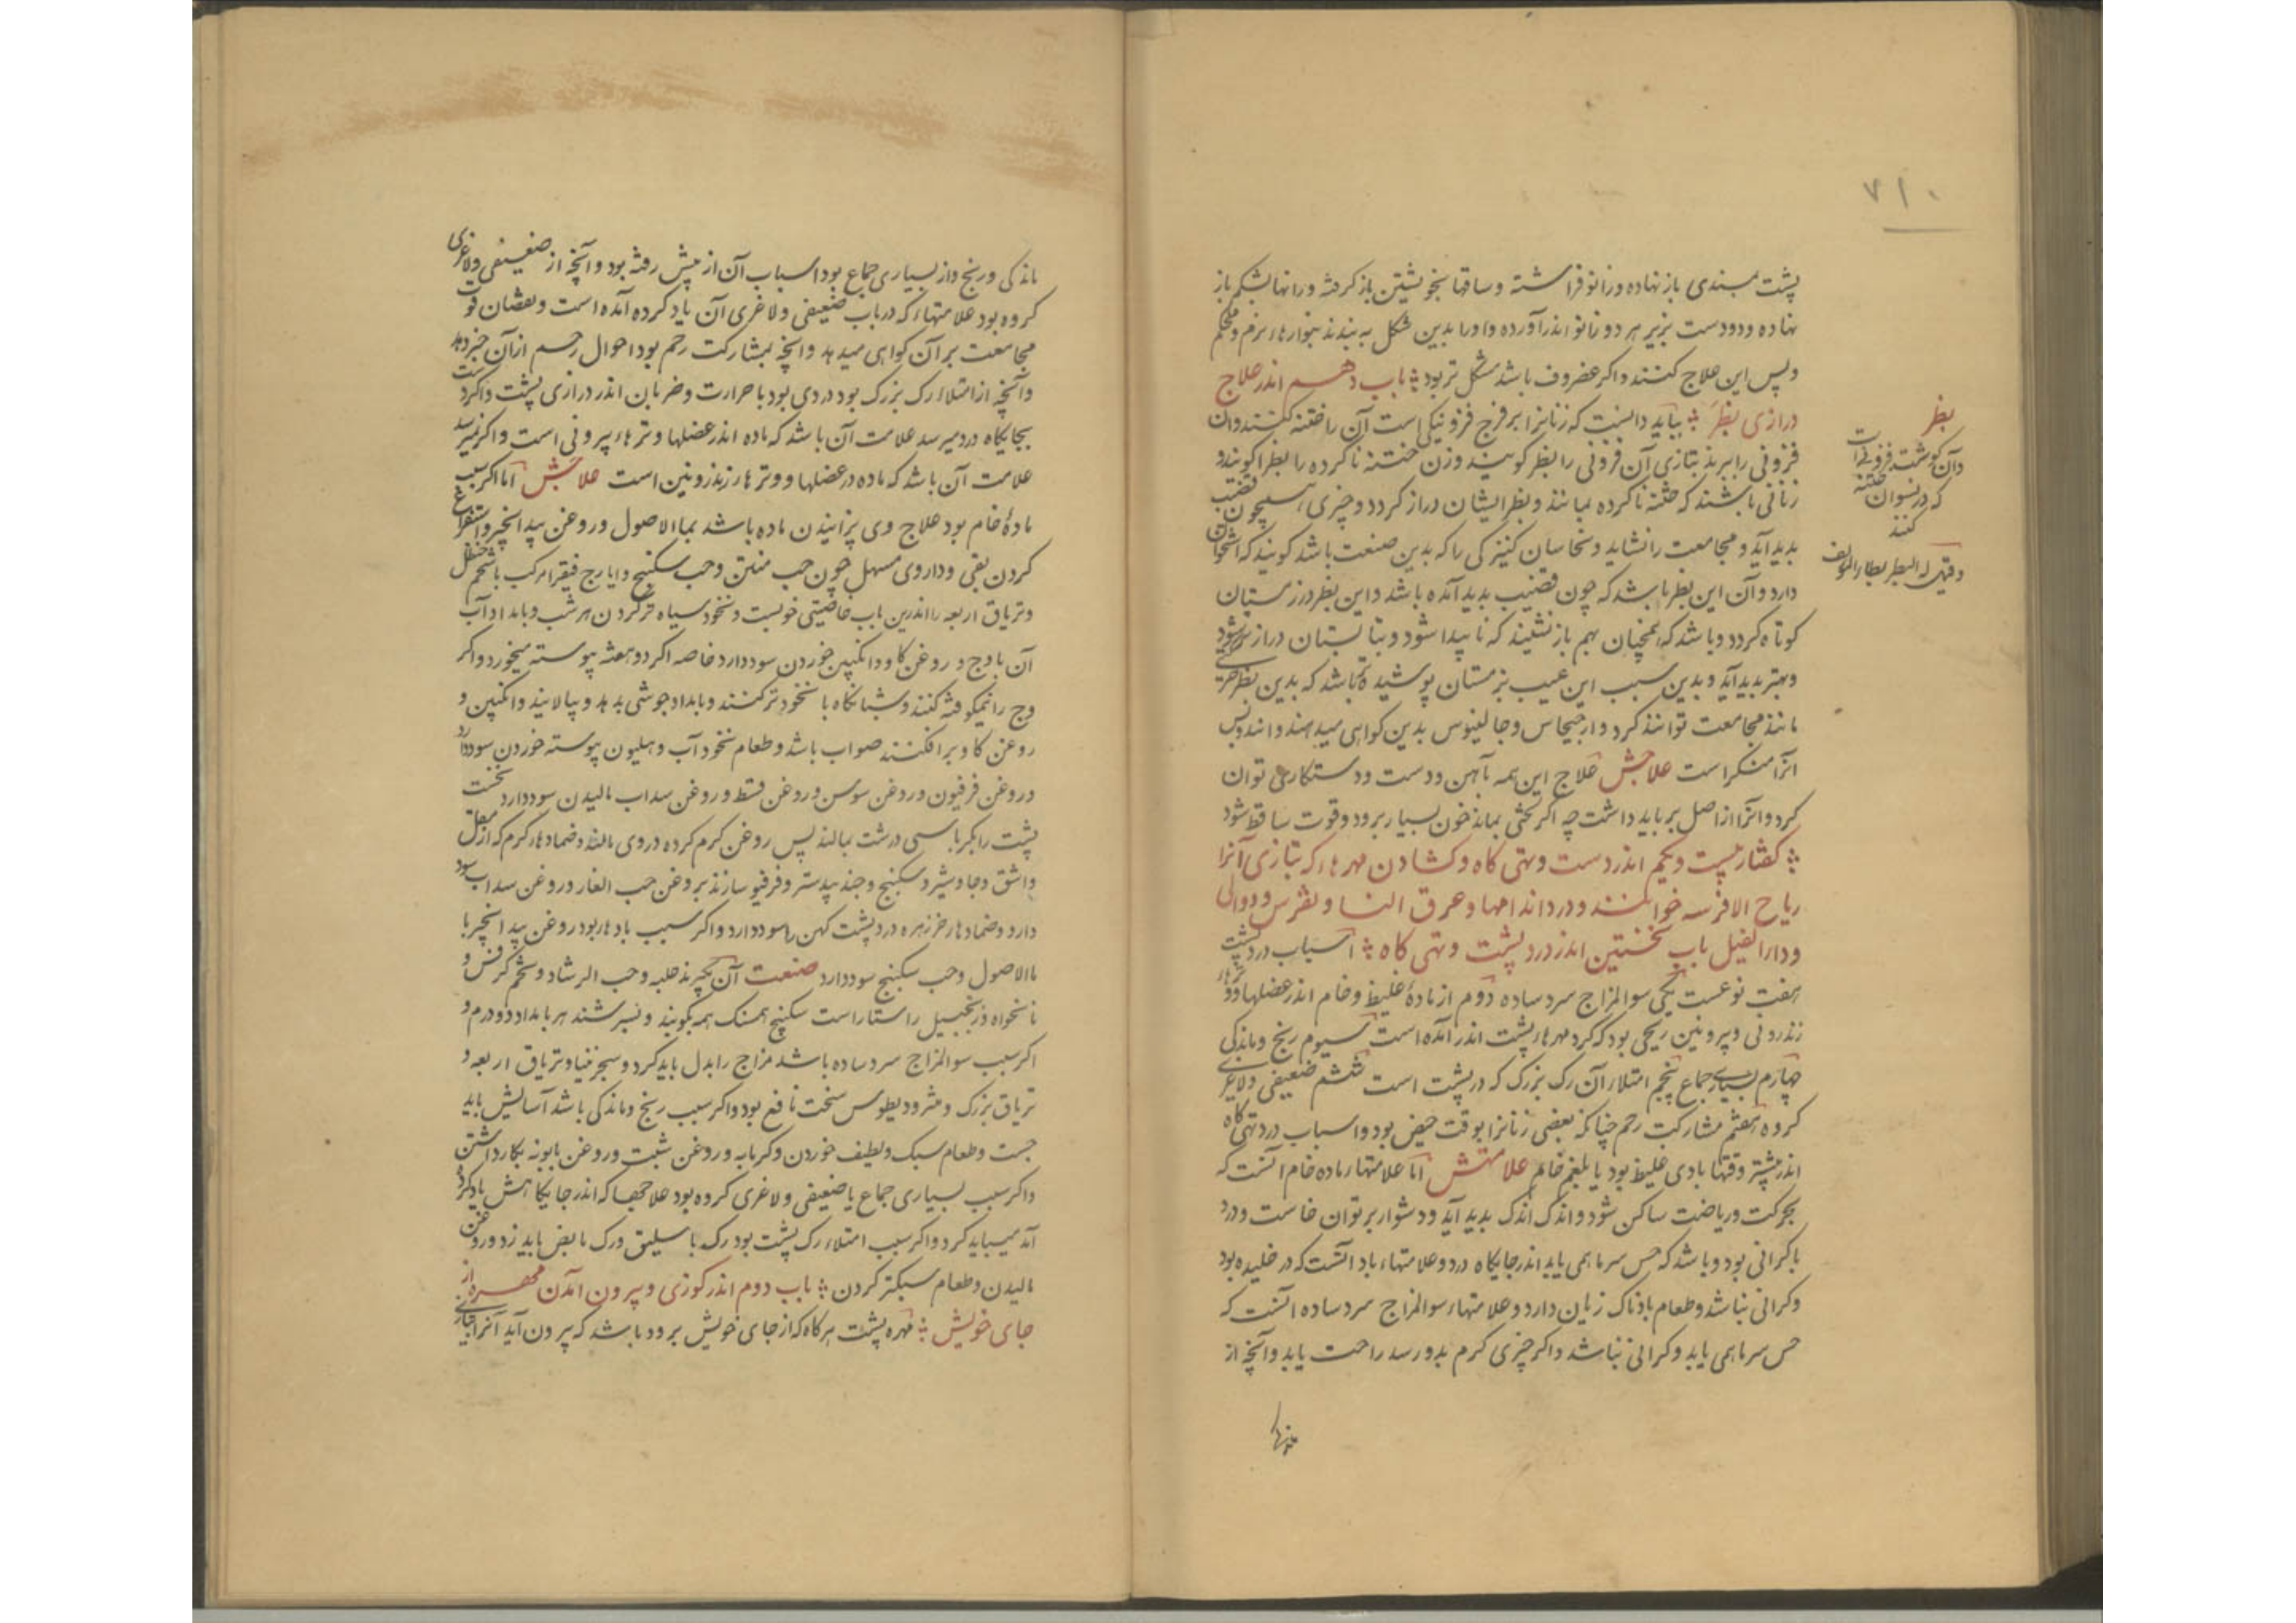 ۷۱۰
پشت بمسندی باز نهاده و زانو فراشته و ساقها بخویشتن باز کرفته و رانها بشکم باز
نهاده و دو دست بزیر هر دو زانو اندر آورده و او را بدین شکل به بندند بنوارهاء نرم و محکم
و پس این علاج کنند و اکر غضروف باشد مشکل تر بود باب دهم اندر علاج
درازی بظر بباید دانست که زنانرا بر فرج فزونیکی است آن را ختنه کنند و آن
فزونی را ببرند بتازی آن فزونی را بظر کویند و زن ختنه ناکرده را بظرا کویند و
زنانی باشند که ختنه ناکرده بمانند و بظر ایشان دراز کردد و چیزی همچون قضیب
پدید آید و مجامعت را نشاید و نخاسان کنیزکی را که بدین صنعت باشد کویند که استخوان
دارد و آن این بظر باشد که چون قضیب پدید آمده باشد و این بظر در زمستان
کوتاه کردد و باشد که همچنان بهم باز نشیند که ناپیدا شود و بتابستان دراز تر شود
و بهتر پدید آید و بدین سبب این عیب بزمستان پوشیده تر باشد که بدین بظر
مانند مجامعت توانند کرد و ارجیجاس و جالینوس بدین کواهی میدهند و
آنرا منکر است علاجش علاج این همه بآهن و دست و دستکاری توان
کرد و آنرا از اصل بر باید داشت چه اکر لختی بماند خون بسیار برود و قوت ساقط شود
کفتار بیست و یکم اندر دست و تهی کاه و کشادن مهرهاء که بتازی آنرا
ریاح الافرسه خوانند و درد اندامها و عرق النسا و نقرس و دوالی
و داء الفیل باب نخستین اندر درد پشت و تهی کاه اسباب درد پشت
هفت نوعست یکی سوالمزاج سرد ساده دوم از مادهٔ غلیظ و خام اندر عضلها و وترهاء
زندرونی و بیرونین ریحی بود که کرد مهرهاء پشت اندر آمده است سیوم رنج و ماندکی
چهارم بسیاری جماع پنجم امتلاء آن رک بزرک که در پشت است ششم ضعیفی و لاغری
کروه هفتم مشارکت رحم چنانکه بعضی زنانرا بوقت حیض بود و اسباب درد تهی کاه
اندر بیشتر وقتها بادی غلیظ بود یا بلغم خام علامتش اما علامتهاء ماده خام آنست که
بحرکت و ریاضت ساکن شود و اندک اندک پدید آید و دشوار بر توان خاست و درد
با کرانی بود و باشد که حس سرما همی یابد اندر جایکاه درد و علامتهاء باد آنست که درد خلیده بود
و کرانی نباشد و طعام بادناک زیان دارد و علامتهاء سوالمزاج سرد ساده آنست که
حس سرما همی یابد و کرانی نباشد و اکر چیزی کرم بدو رسد راحت یابد و آنچه از
بظر
و آن کوشت فزونیست
که در نسوان ختنه
کنند
ماندکی و رنج و از بسیاری جماع بود اسباب آن از پیش رفته بود و آنچه از ضعیفی و لاغری
کروه بود علامتهاء که در باب ضعیفی و لاغری آن یاد کرده آمده است و نقصان قوت
مجامعت بر آن کواهی میدهد و آنچه بمشارکت رحم بود احوال رحم از آن خبر دهد
و آنچه از امتلاء رک بزرک بود دردی بود با حرارت و ضربان اندر درازی پشت و اکر دست
بجایکاه درد میرسد علامت آن باشد که ماده اندر عضلها و وترهاء بیرونی است و اکر نمیرسد
علامت آن باشد که ماده در عضلها و وترهاء زندرونین است علاجش اما اکر سبب
مادهٔ خام بود علاج وی پزانیدن ماده باشد بماالاصول و روغن بیدانجیر و استفراغ
کردن بقی و داروی مسهل چون حب منتن و حب سکبینج و ایارج فیقرا مرکب با شحم حنظل
و تریاق اربعه را اندرین باب خاصیتی خوبست و نخود سیاه تر کردن هر شب و بامداد آب
آن با وج و روغن کاو و انکبین خوردن سود دارد خاصه اکر دو هفته پیوسته میخورد و اکر
وج را نیمکوفته کنند و شبانکاه با نخود تر کنند و بامداد جوشی بدهد و بپالایند و انکبین و
روغن کاو برافکنند صواب باشد و طعام نخود آب و هلیون پیوسته خوردن سود دارد
و روغن فرفیون و روغن سوسن و روغن قسط و روغن سداب مالیدن سود دارد نخست
پشت را بکرباسی درشت بمالند پس روغن کرم کرده در وی مالند و ضمادهاء کرم که از مقل
و اشق و جاوشیر و سکبینج و جندبیدستر و فرفیو سازند بروغن حب الغار و روغن سداب سود
دارد و ضمادهاء خرزهره درد پشت کهن را سود دارد و اکر سبب بادها بود روغن بیدانجیر با
ماالاصول و حب سکبینج سود دارد صنعت آن بکیرند حلبه و حب الرشاد و تخم کرفس و
نانخواه و زنجبیل راستا راست سکبینج همسنک همه بکوبند و بسرشند هر بامداد دو درم و
اکر سبب سوالمزاج سرد ساده باشد مزاج را بدل باید کرد و سجزنیا و تریاق اربعه و
تریاق بزرک و مثرودیطوس سخت نافع بود و اکر سبب رنج و ماندکی باشد آسایش باید
جست و طعام سبک و لطیف خوردن و کرمابه و روغن شبت و روغن بابونه بکار داشتن
و اکر سبب بسیاری جماع یا ضعیفی و لاغری کروه بود علاجها که اندر جایکاهش یاد کرده
آمد میباید کرد و اکر سبب امتلاء رک پشت بود رک باسلیق و رک مابض باید زد و روغن
مالیدن و طعام سبکتر کردن باب دوم اندر کوزی و بیرون آمدن مهره از
جای خویش مهره پشت هرکاه که از جای خویش برود باشد که بیرون آید آنرا